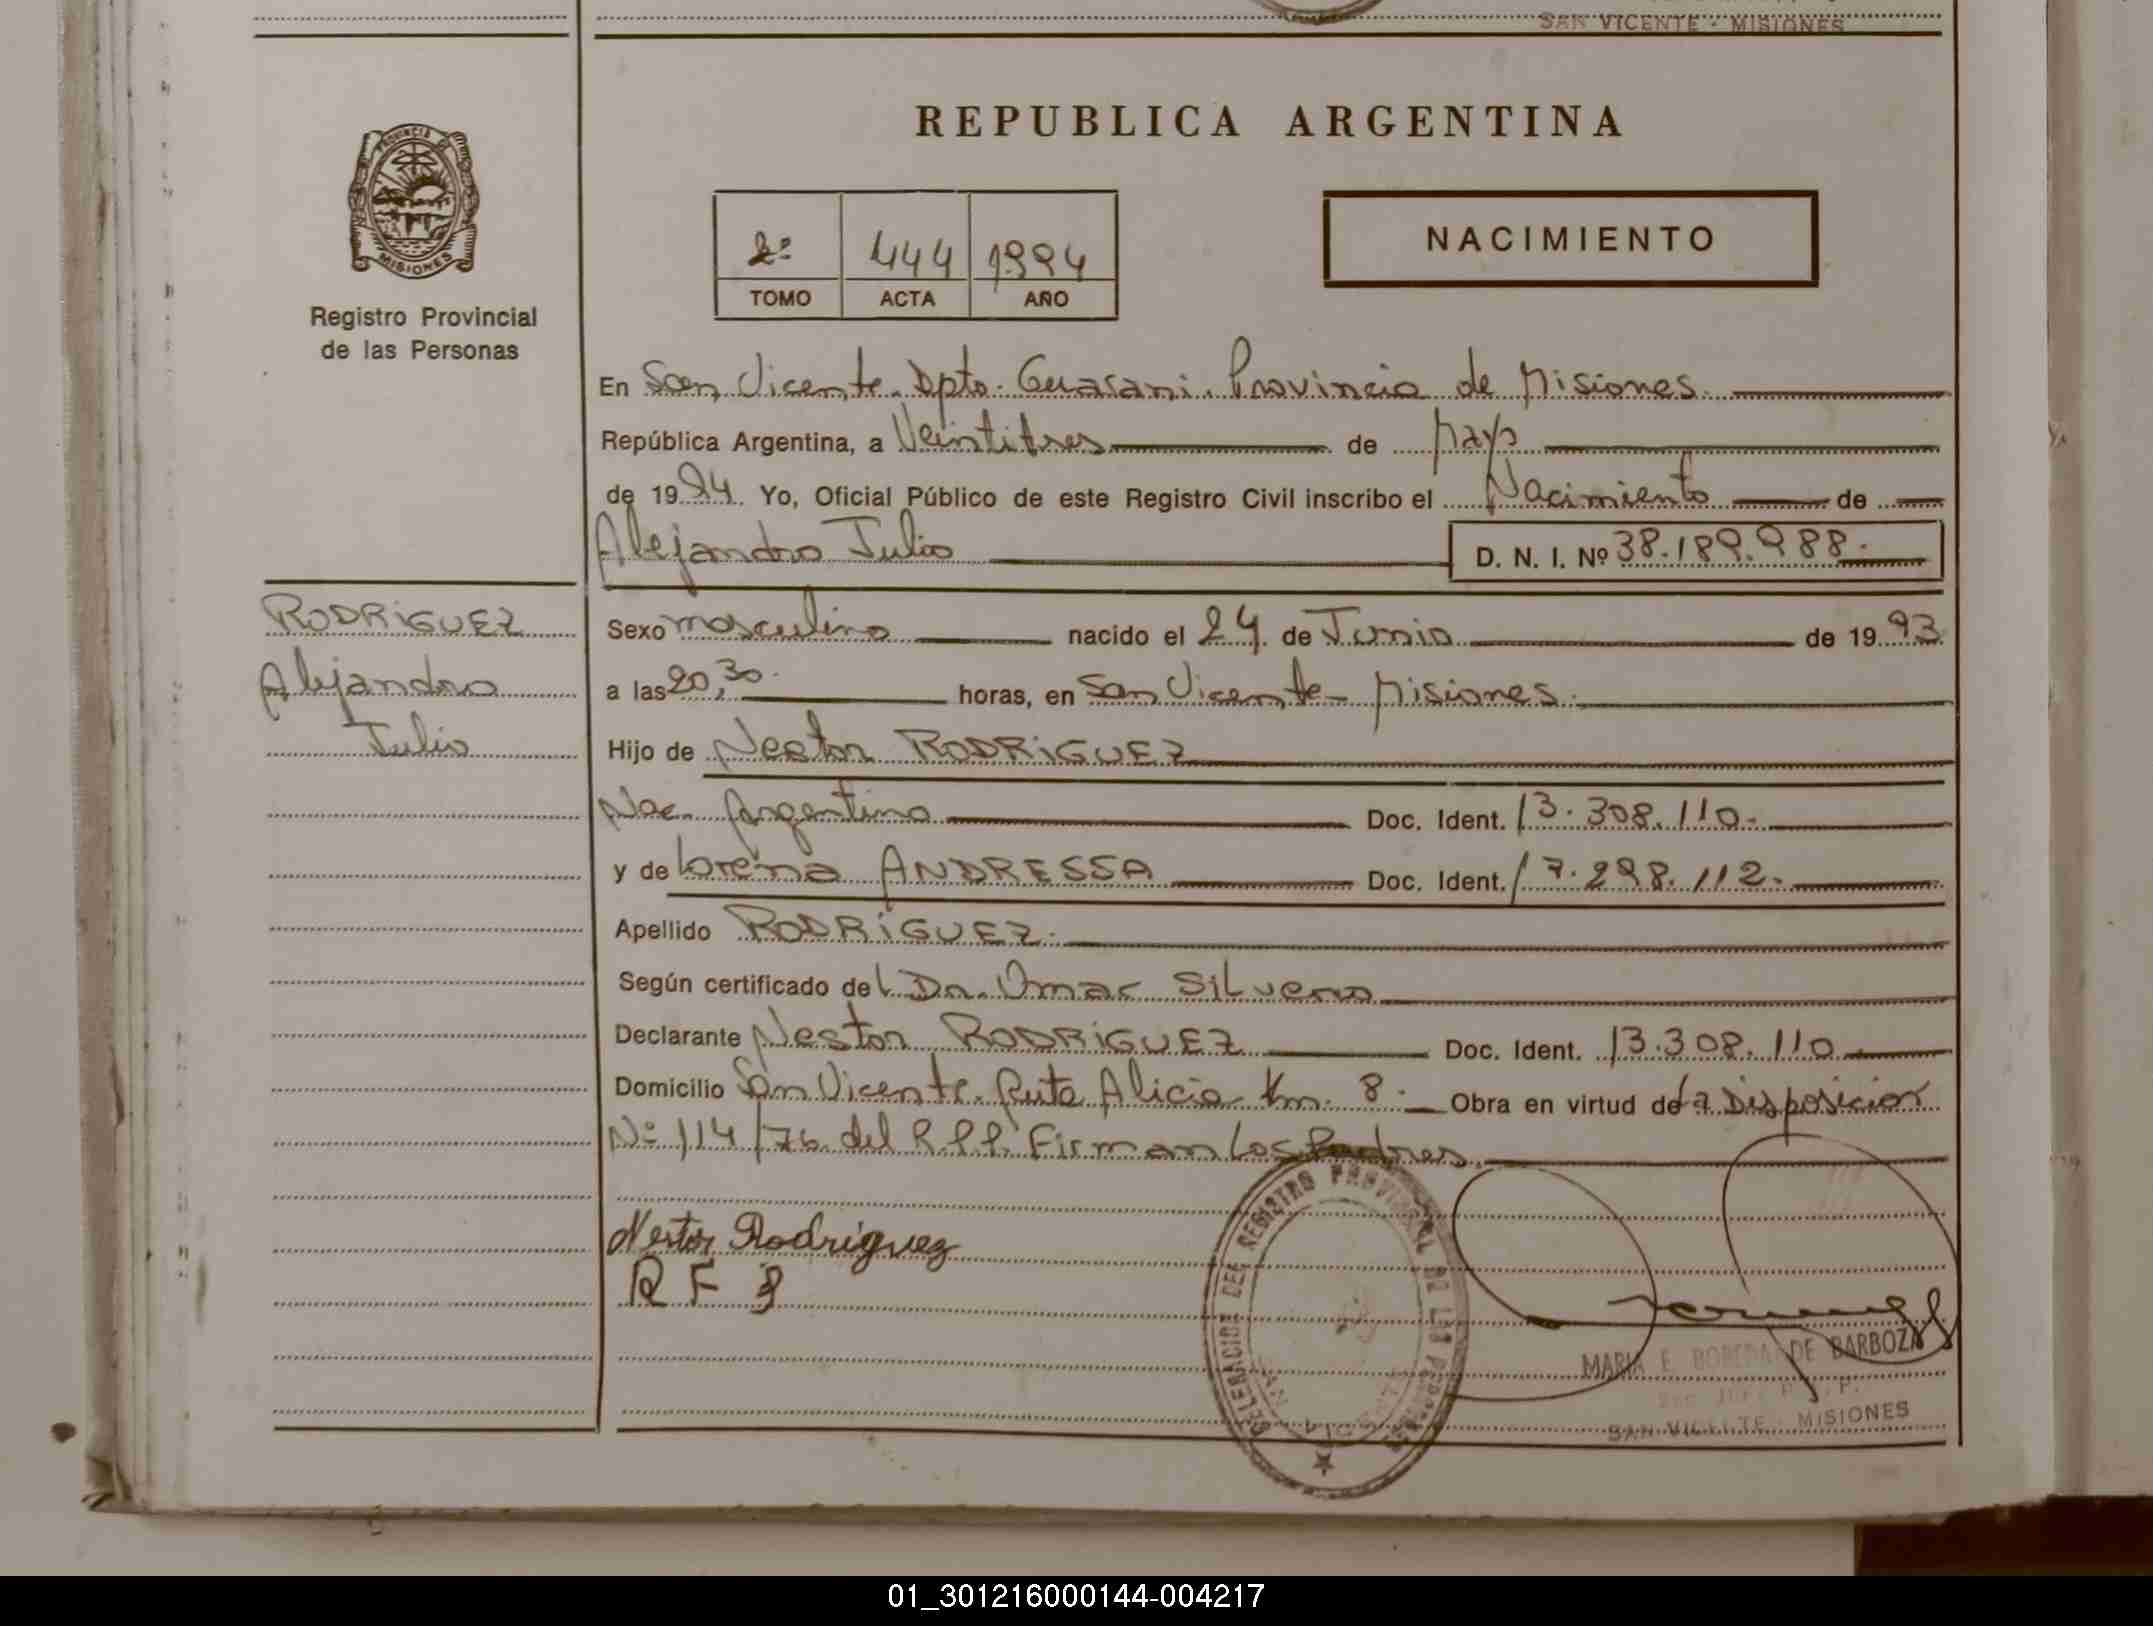 SAN VICENTE - MISIONES
REPUBLICA ARGENTINA
PROVINCIA
MISIONES
Registro Provincial
de las Personas
2º 444 1994
TOMO ACTA AÑO
NACIMIENTO
En San Vicente. Dpto. Guarani. Provincia de Misiones.
República Argentina, a Veintitres de Mayo
de 1994. Yo, Oficial Público de este Registro Civil inscribo el Nacimiento de
Alejandro Julio D. N. I. Nº 38.189.988.
RODRIGUEZ
Alejandro
Julio
Sexo masculino nacido el 24 de Junio de 1993
a las 20,30. horas, en San Vicente - Misiones.
Hijo de Nestor RODRIGUEZ
Nac. Argentina Doc. Ident. 13.308.110.
y de Lorena ANDRESSA Doc. Ident. 17.298.112.
Apellido RODRIGUEZ.
Según certificado del Dr. Omar Silvero
Declarante Nestor RODRIGUEZ Doc. Ident. 13.308.110
Domicilio San Vicente. Ruta Alicia Km. 8. Obra en virtud de la Disposicion
Nº 114/76 del R.P.P. Firman Los Padres.
Nestor Rodriguez
R F
DELEGACION DEL REGISTRO PROVINCIAL DE LAS PERSONAS
SAN VICENTE
MARIA E. DE BARBOZA
SAN VICENTE - MISIONES
01_301216000144-004217